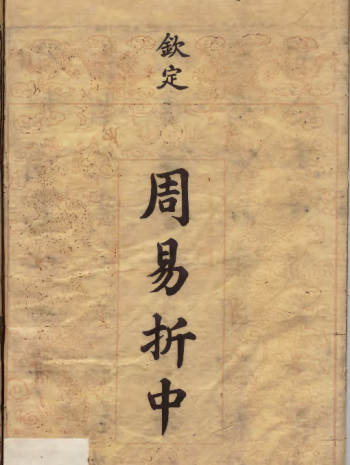 欽定
周易折中